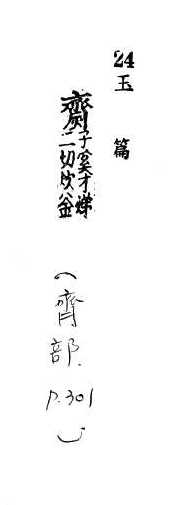 24
玉篇
齌子奚才娣
二切炊釜
(齊部. P.301)